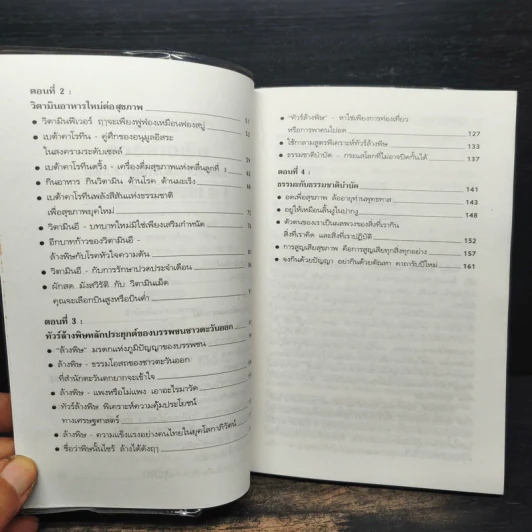 ตอนที่ 2 :
วิตามินอาหารใหม่ต่อสุขภาพ
● วิตามินฟีเวอร์ ฤๅจะเพียงฟูฟ่องเหมือนฟองสบู่
● เบต้าคาโรทีน - คู่ศึกของอนุมูลอิสระ
ในสงครามระดับเซลล์
● เบต้าคาโรทีนดริ๊ง - เครื่องดื่มสุขภาพแห่งคลื่นลูกที่
● กินอาหาร กินวิตามิน ต้านโรค ต้านมะเร็ง
● เบต้าคาโรทีนพลังสีสันแห่งธรรมชาติ
เพื่อสุขภาพยุคใหม่
● วิตามินอี - บทบาทใหม่มิใช่เพียงเสริมกำหนัด
● อีกบาทก้าวของวิตามินอี -
ล้างพิษกับโรคหัวใจความดัน
● วิตามินอี - กับการรักษาปวดประจำเดือน
● ผักสด มังสวิรัติ กับ วิตามินเม็ด
คุณจะเลือกบินสูงหรือบินต่ำ
ตอนที่ 3 :
ทัวร์ล้างพิษหลักประยุกต์ของบรรพชนชาวตะวันออก
● "ล้างพิษ" มรดกแห่งภูมิปัญญาของบรรพชน
● ล้างพิษ - ธรรมโอสถของชาวตะวันออก
ที่สำนักตะวันตกยากจะเข้าใจ
● ล้างพิษ - แพงหรือไม่แพง เอาอะไรมาวัด
● ทัวร์ล้างพิษ พิเคราะห์ความคุ้มประโยชน์
ทางเศรษฐศาสตร์
● ล้างพิษ - ความแข็งแรงอย่างคนไทยในยุคโลกาภิวัตน์
● ชื่อว่าพิษนั้นไซร้ ล้างได้ดังฤๅ
● "ทัวร์ล้างพิษ" - หาใช่เพียงการท่องเที่ยว
หรือการพาคนไปอด 127
● ใช้กาลามสูตรพิเคราะห์ทัวร์ล้างพิษ 133
● ธรรมชาติบำบัด - กระแสโลกที่ไม่อาจปิดกั้นได้ 137
ตอนที่ 4 :
ธรรมะกับธรรมชาติบำบัด 141
● อดเพื่อสุขภาพ ล้ออายุท่านพุทธทาส 143
● อยู่ให้เหมือนลิ้นงูในปากงู 148
● ตัวตนของเราเป็นผลพวงของสิ่งที่เรากิน
สิ่งที่เราคิด และสิ่งที่เราปฏิบัติ 152
● การสูญเสียสุขภาพ คือการสูญเสียทุกสิ่งทุกอย่าง 157
● จงกินด้วยปัญญา อย่ากินด้วยตัณหา คาถารับปีใหม่ 161